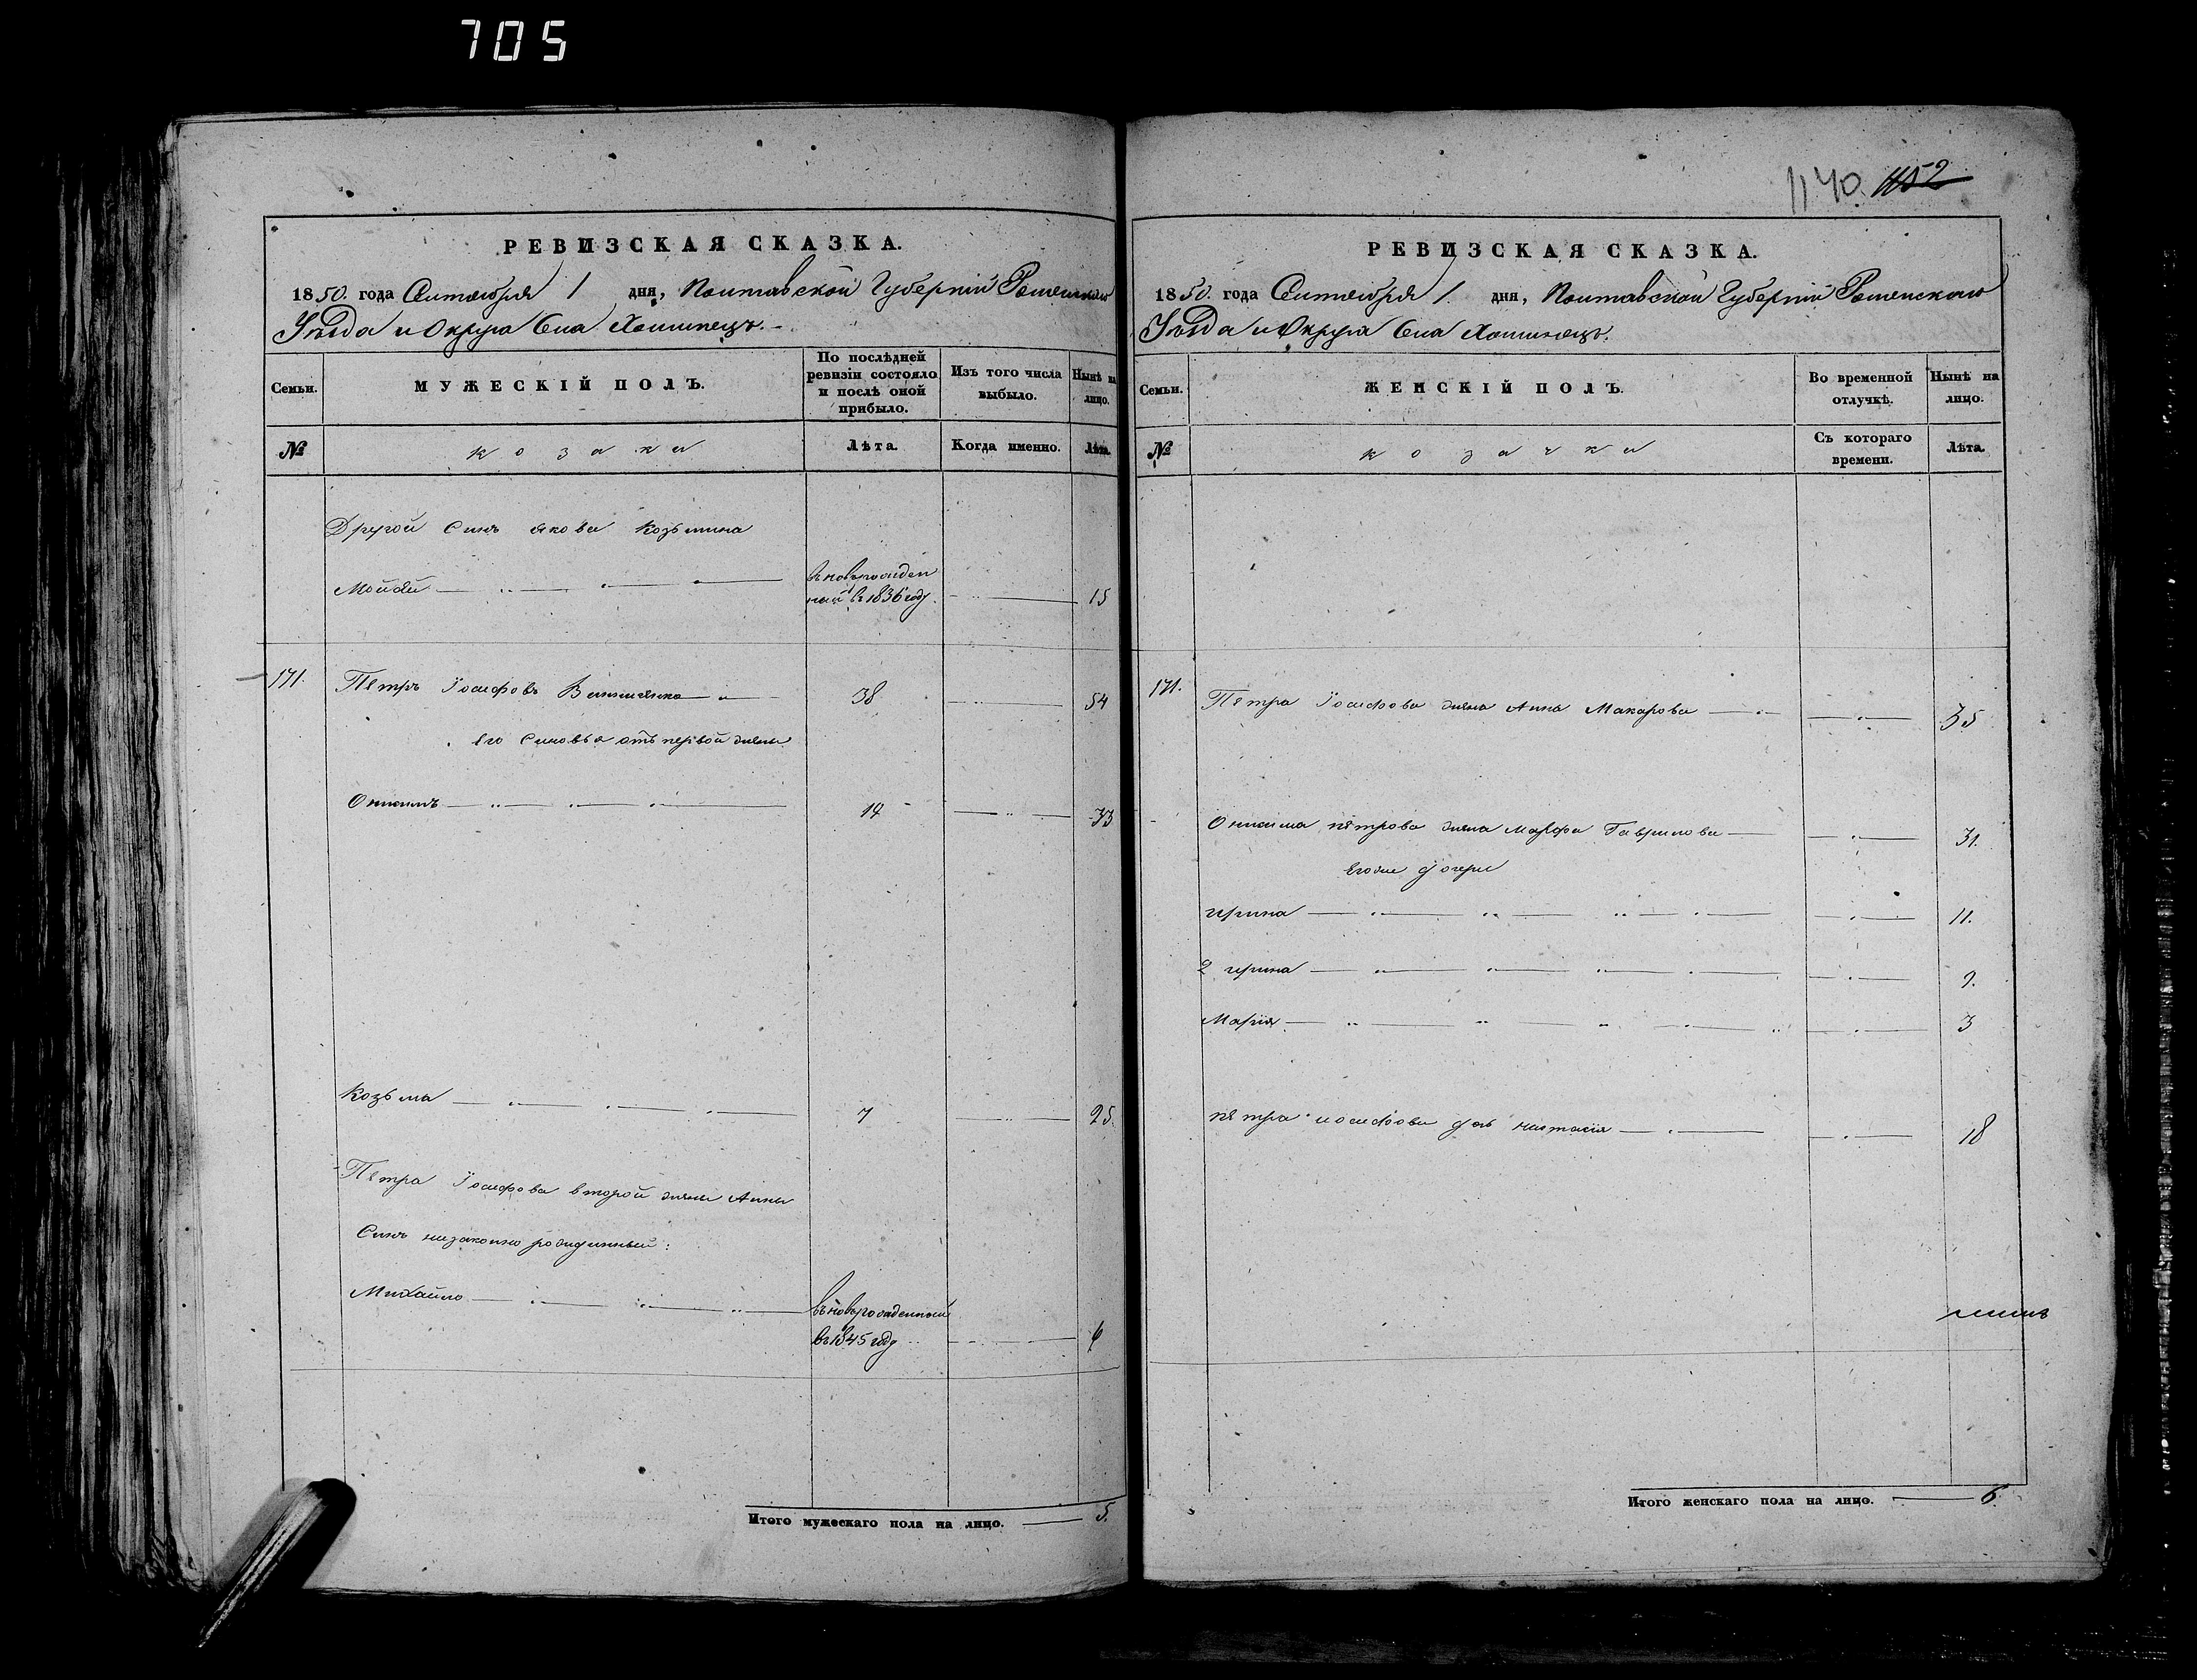 705
1140. 1152
РЕВИЗСКАЯ СКАЗКА.
1850. года Сентября 1 дня, Полтавской Губерніи Роменского
Уѣзда и Округа Села
Семьи.
МУЖЕСКІЙ ПОЛЪ.
По послѣдней ревизіи состояло и послѣ оной прибыло.
Изъ того числа выбыло.
Нынѣ на лицо.
№
козаки
Лѣта.
Когда именно.
Лѣта.
Другой Синъ Якова Козьмина
вновьрожден
ный въ 1836 году. 15
171. Петръ Іосифовъ 38 54
его Синовья отъ первой жены
Онисимъ 14 33
Козьма 7 25.
Петра Іосифова второй жены Анны
Синъ незаконно рожденный:
Михайло вновьрожденный
въ 1845 году 6
Итого мужескаго пола на лицо. 5.
РЕВИЗСКАЯ СКАЗКА.
1850. года Сентября 1. дня, Полтавской Губерніи Роменского
Уѣзда и Округа Села
Семьи.
ЖЕНСКІЙ ПОЛЪ.
Во временной отлучкѣ.
Нынѣ на лицо.
№
козачки
Съ котораго времени.
Лѣта.
171. Петра Іосифова жена Анна Макарова 35
Онисима петрова жена Марфа Гаврилова 31.
Егоже дочери
ирина 11.
2 ирина 9.
Марія 3
петра иосифова дочь настасія 18
Итого женскаго пола на лицо. 6.